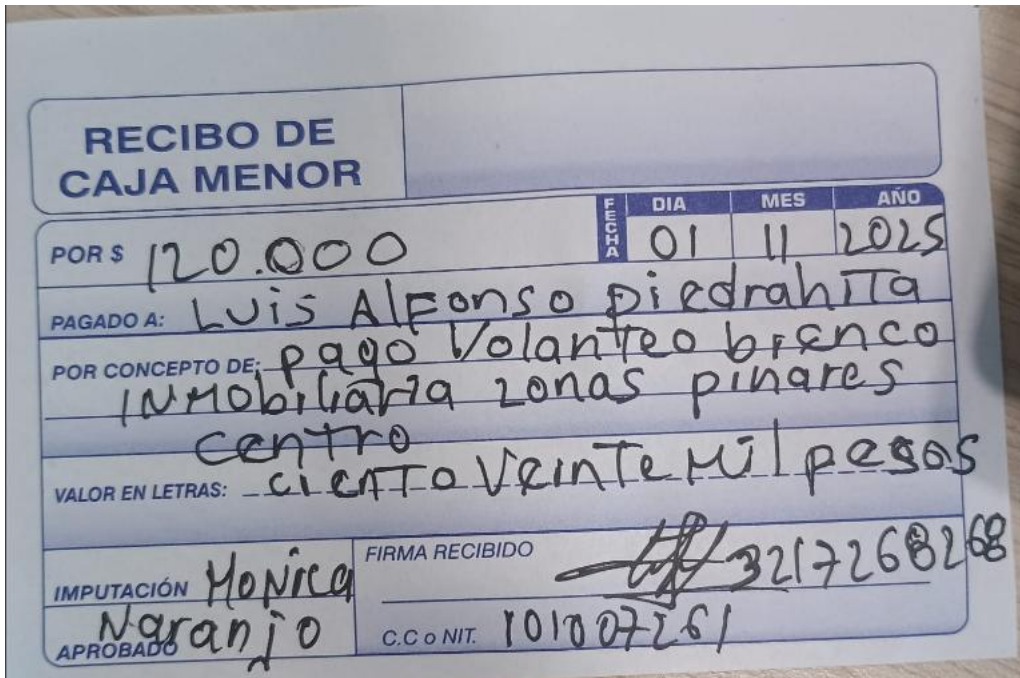 RECIBO DE
CAJA MENOR
FECHA DIA MES AÑO
POR $ 120.000 01 11 2025
PAGADO A: LUis AlFonso piedrahiTa
POR CONCEPTO DE: pago Volanteo branco
INMobiliaria zonas pinares
centro
VALOR EN LETRAS: cienTo VeinTe Mil pesos
IMPUTACIÓN MoNica
FIRMA RECIBIDO 3217268268
APROBADO Naranjo
C.C o NIT. 101007261